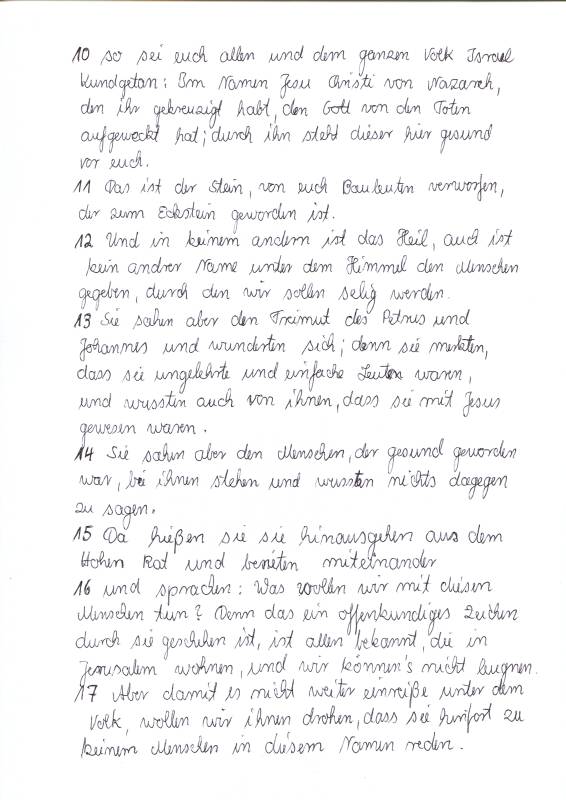 10 so sei euch allen und dem ganzen Volk Israel
kundgetan: Im Namen Jesu Christi von Nazareh,
den ihr gekreuzigt habt, den Gott von den Toten
aufgeweckt hat; durch ihn steht dieser hier gesund
vor euch.
11 Das ist der Stein, von euch Bauleuten verworfen,
der zum Eckstein geworden ist.
12 Und in keinem andern ist das Heil, auch ist
kein andrer Name unter dem Himmel den Menschen
gegeben, durch den wir sollen selig werden.
13 Sie sahen aber den Freimut des Petrus und
Johannes und wunderten sich; denn sie merkten,
dass sie ungelehrte und einfache Leute waren,
und wussten auch von ihnen, dass sie mit Jesus
gewesen waren.
14 Sie sahen aber den Menschen, der gesund geworden
war, bei ihnen stehen und wussten nichts dagegen
zu sagen.
15 Da hießen sie sie hinausgehen aus dem
Hohen Rat und berieten miteinander
16 und sprachen: Was wollen wir mit diesen
Menschen tun? Denn das ein offenkundiges Zeichen
durch sie geschehen ist, ist allen bekannt, die in
Jerusalem wohnen, und wir können's nicht leugnen.
17 Aber damit es nicht weiter einreiße unter dem
Volk, wollen wir ihnen drohen, dass sie hinfort zu
keinem Menschen in diesem Namen reden.